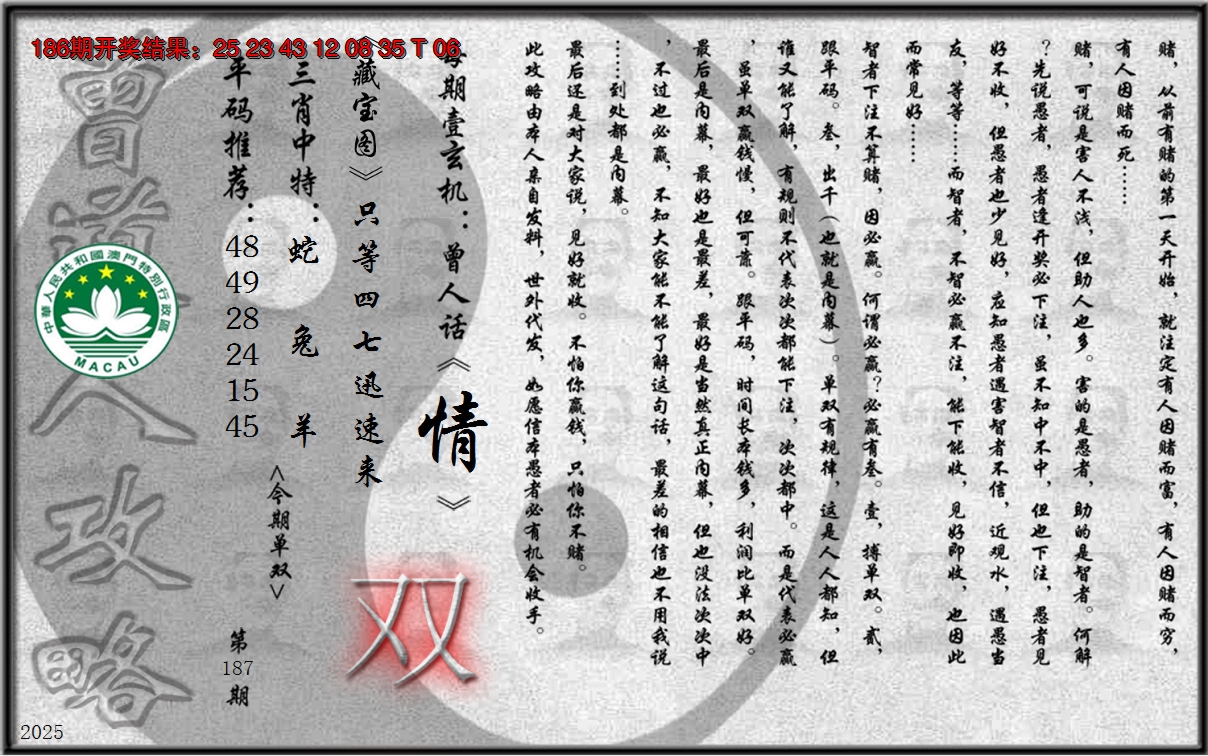 186期开奖结果：25 23 43 12 08 35 T 06
赌，从前有赌的第一天开始，就注定有人因赌而富，有人因赌而穷，
有人因赌而死……
赌，可说是害人不浅，但助人也多。害的是愚者，助的是智者。何解
？先说愚者，愚者逢开奖必下注，虽不知中不中，但也下注，愚者见
好不收，但愚者也少见好，应知愚者遇害智者不信，近观水，遇愚当
友，等等……而智者，不智必赢不注，能下能收，见好即收，也因此
而常见好……
智者下注不算赌，因必赢。何谓必赢？必赢有叁。壹，搏单双。贰，
跟平码。叁，出千（也就是内幕）。单双有规律，这是人人都知，但
谁又能了解，有规则不代表次次都能下注，次次都中。而是代表必赢
，虽单双赢钱慢，但可靠。跟平码，时间长本钱多，利润比单双好。
最后是内幕，最好也是最差，最好是当然真正内幕，但也没法次次中
，不过也必赢，不知大家能不能了解这句话，最差的相信也不用我说
……到处都是内幕。
最后还是对大家说，见好就收。不怕你赢钱，只怕你不赌。
此攻略由本人亲自发料，世外代发，如愿信本愚者必有机会收手。
每期壹玄机：曾人话《情》
《藏宝图》只等四七迅速来
双
三肖中特：蛇 兔 羊
<今期单双>
平码推荐：48 49 28 24 15 45
第187期
曾道人攻略
中華人民共和國澳門特別行政區
MACAU
2025